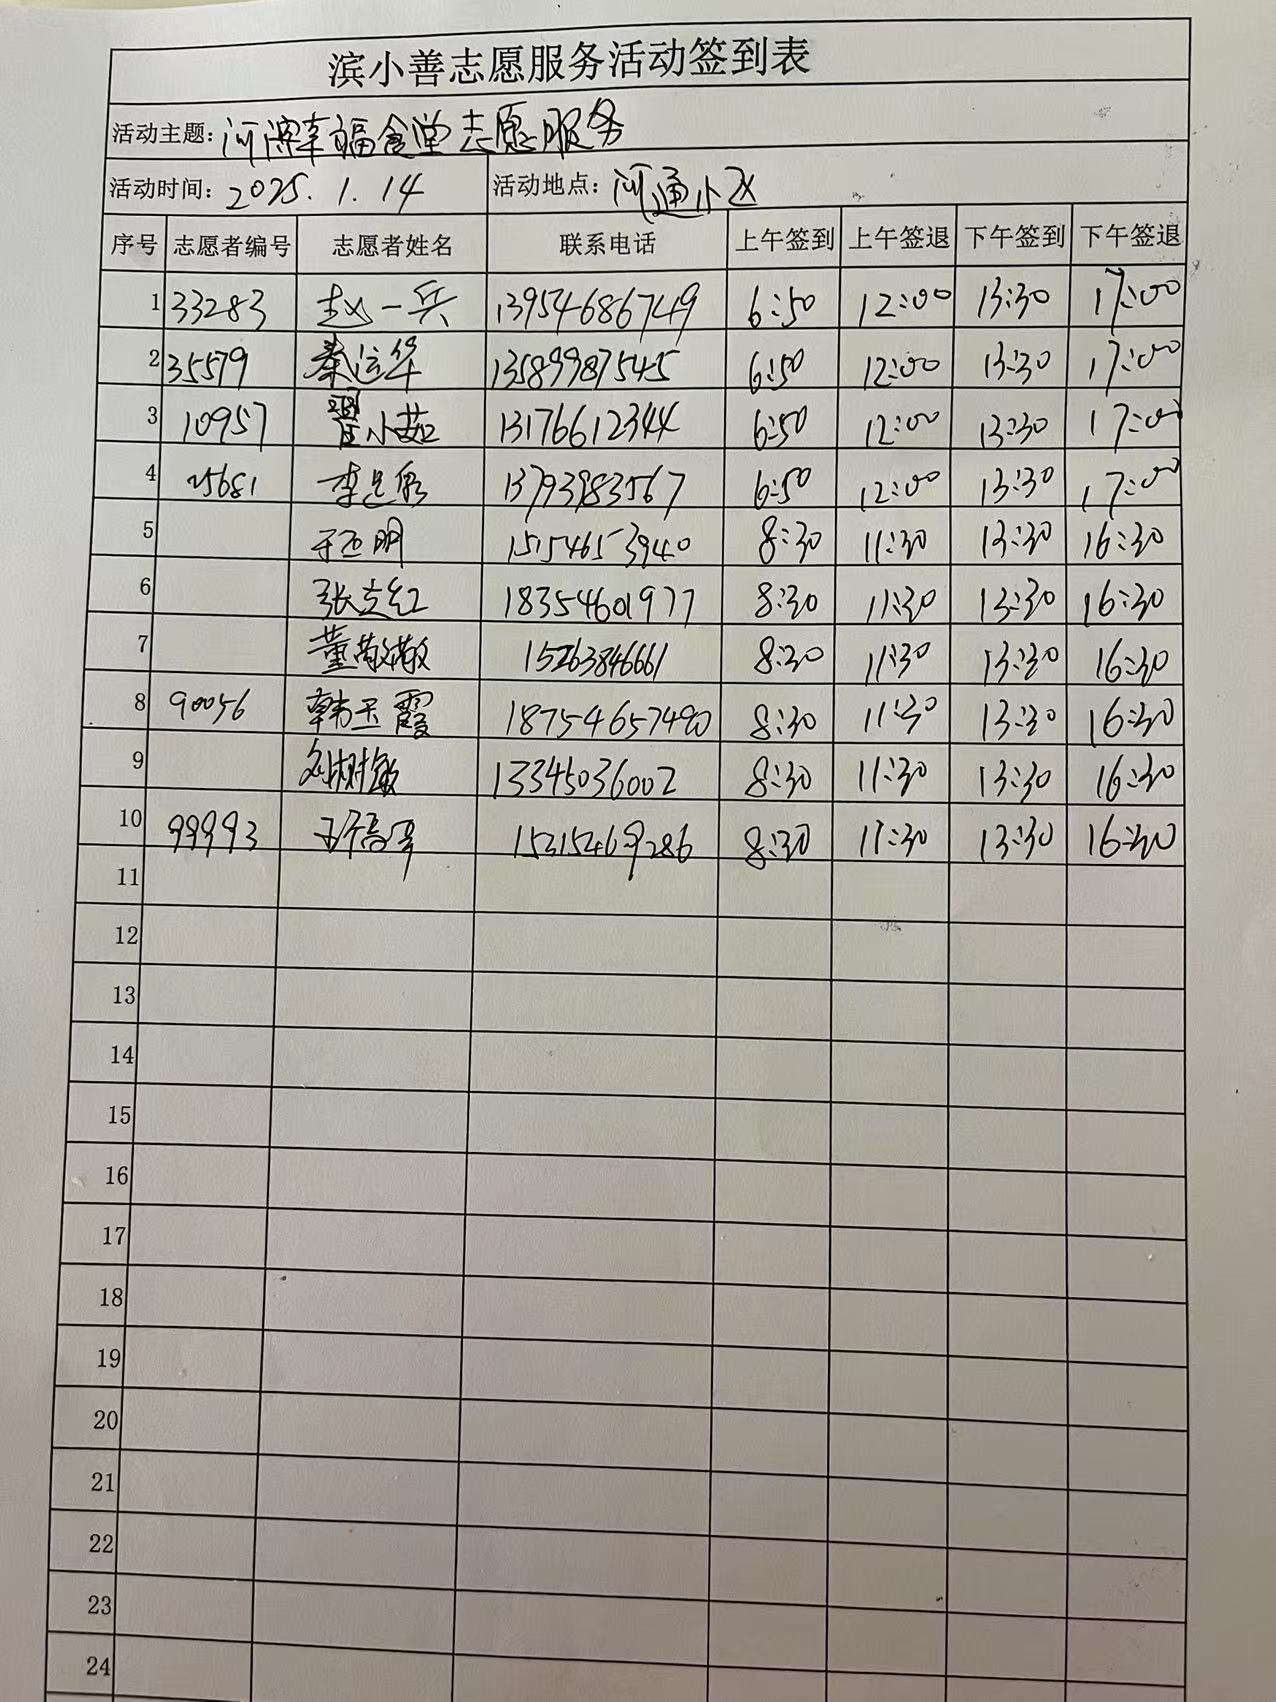 滨小善志愿服务活动签到表
活动主题: 河滨幸福食堂志愿服务
活动时间: 2025.1.14 活动地点: 河通小区
序号 志愿者编号 志愿者姓名 联系电话 上午签到 上午签退 下午签到 下午签退
1 33283 赵一兵 13954686749 6:50 12:00 13:30 17:00
2 35579 秦运华 13589987545 6:50 12:00 13:30 17:00
3 10957 小茹 13176612344 6:50 12:00 13:30 17:00
4 25681 李 13793983567 6:50 12:00 13:30 17:00
5 明 15154653940 8:30 11:30 13:30 16:30
6 张立红 18354601977 8:30 11:30 13:30 16:30
7 董敬敬 15263846661 8:30 11:30 13:30 16:30
8 90056 韩玉霞 18754657490 8:30 11:30 13:30 16:30
9 刘树敏 13345036002 8:30 11:30 13:30 16:30
10 99993 15215469286 8:30 11:30 13:30 16:30
11
12
13
14
15
16
17
18
19
20
21
22
23
24